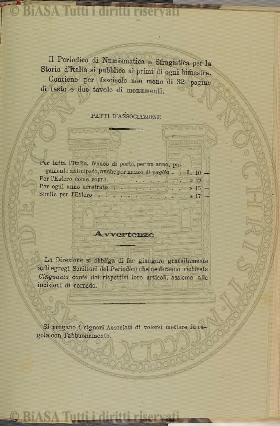 © BiASA Tutti i diritti riservati
Il Periodico di Numismatica e Sfragistica per la
Storia d'Italia si pubblica ai primi di ogni bimestre.
Contiene per fascicolo non meno di 32 pagine
di testo e due tavole di monumenti.
PATTI D'ASSOCIAZIONE
Per tutta l'Italia, franco di porto, per un anno, pa-
gamento anticipato, anche per mezzo di vaglia L. 10 —
Per l'Estero come sopra » 12
Per ogni anno arretrato » 15
Simile per l'Estero » 17 —
Avvertenze
La Direzione si obbliga di far giungere gratuitamente
agli egregi Scrittori del Periodico che ne faranno richiesta
Cinquanta copie dei rispettivi loro articoli, assieme alle
incisioni di corredo.
Si pregano i signori Associati di volersi mettere in re-
gola con l'abbuonamento.
© BiASA Tutti i diritti riservati